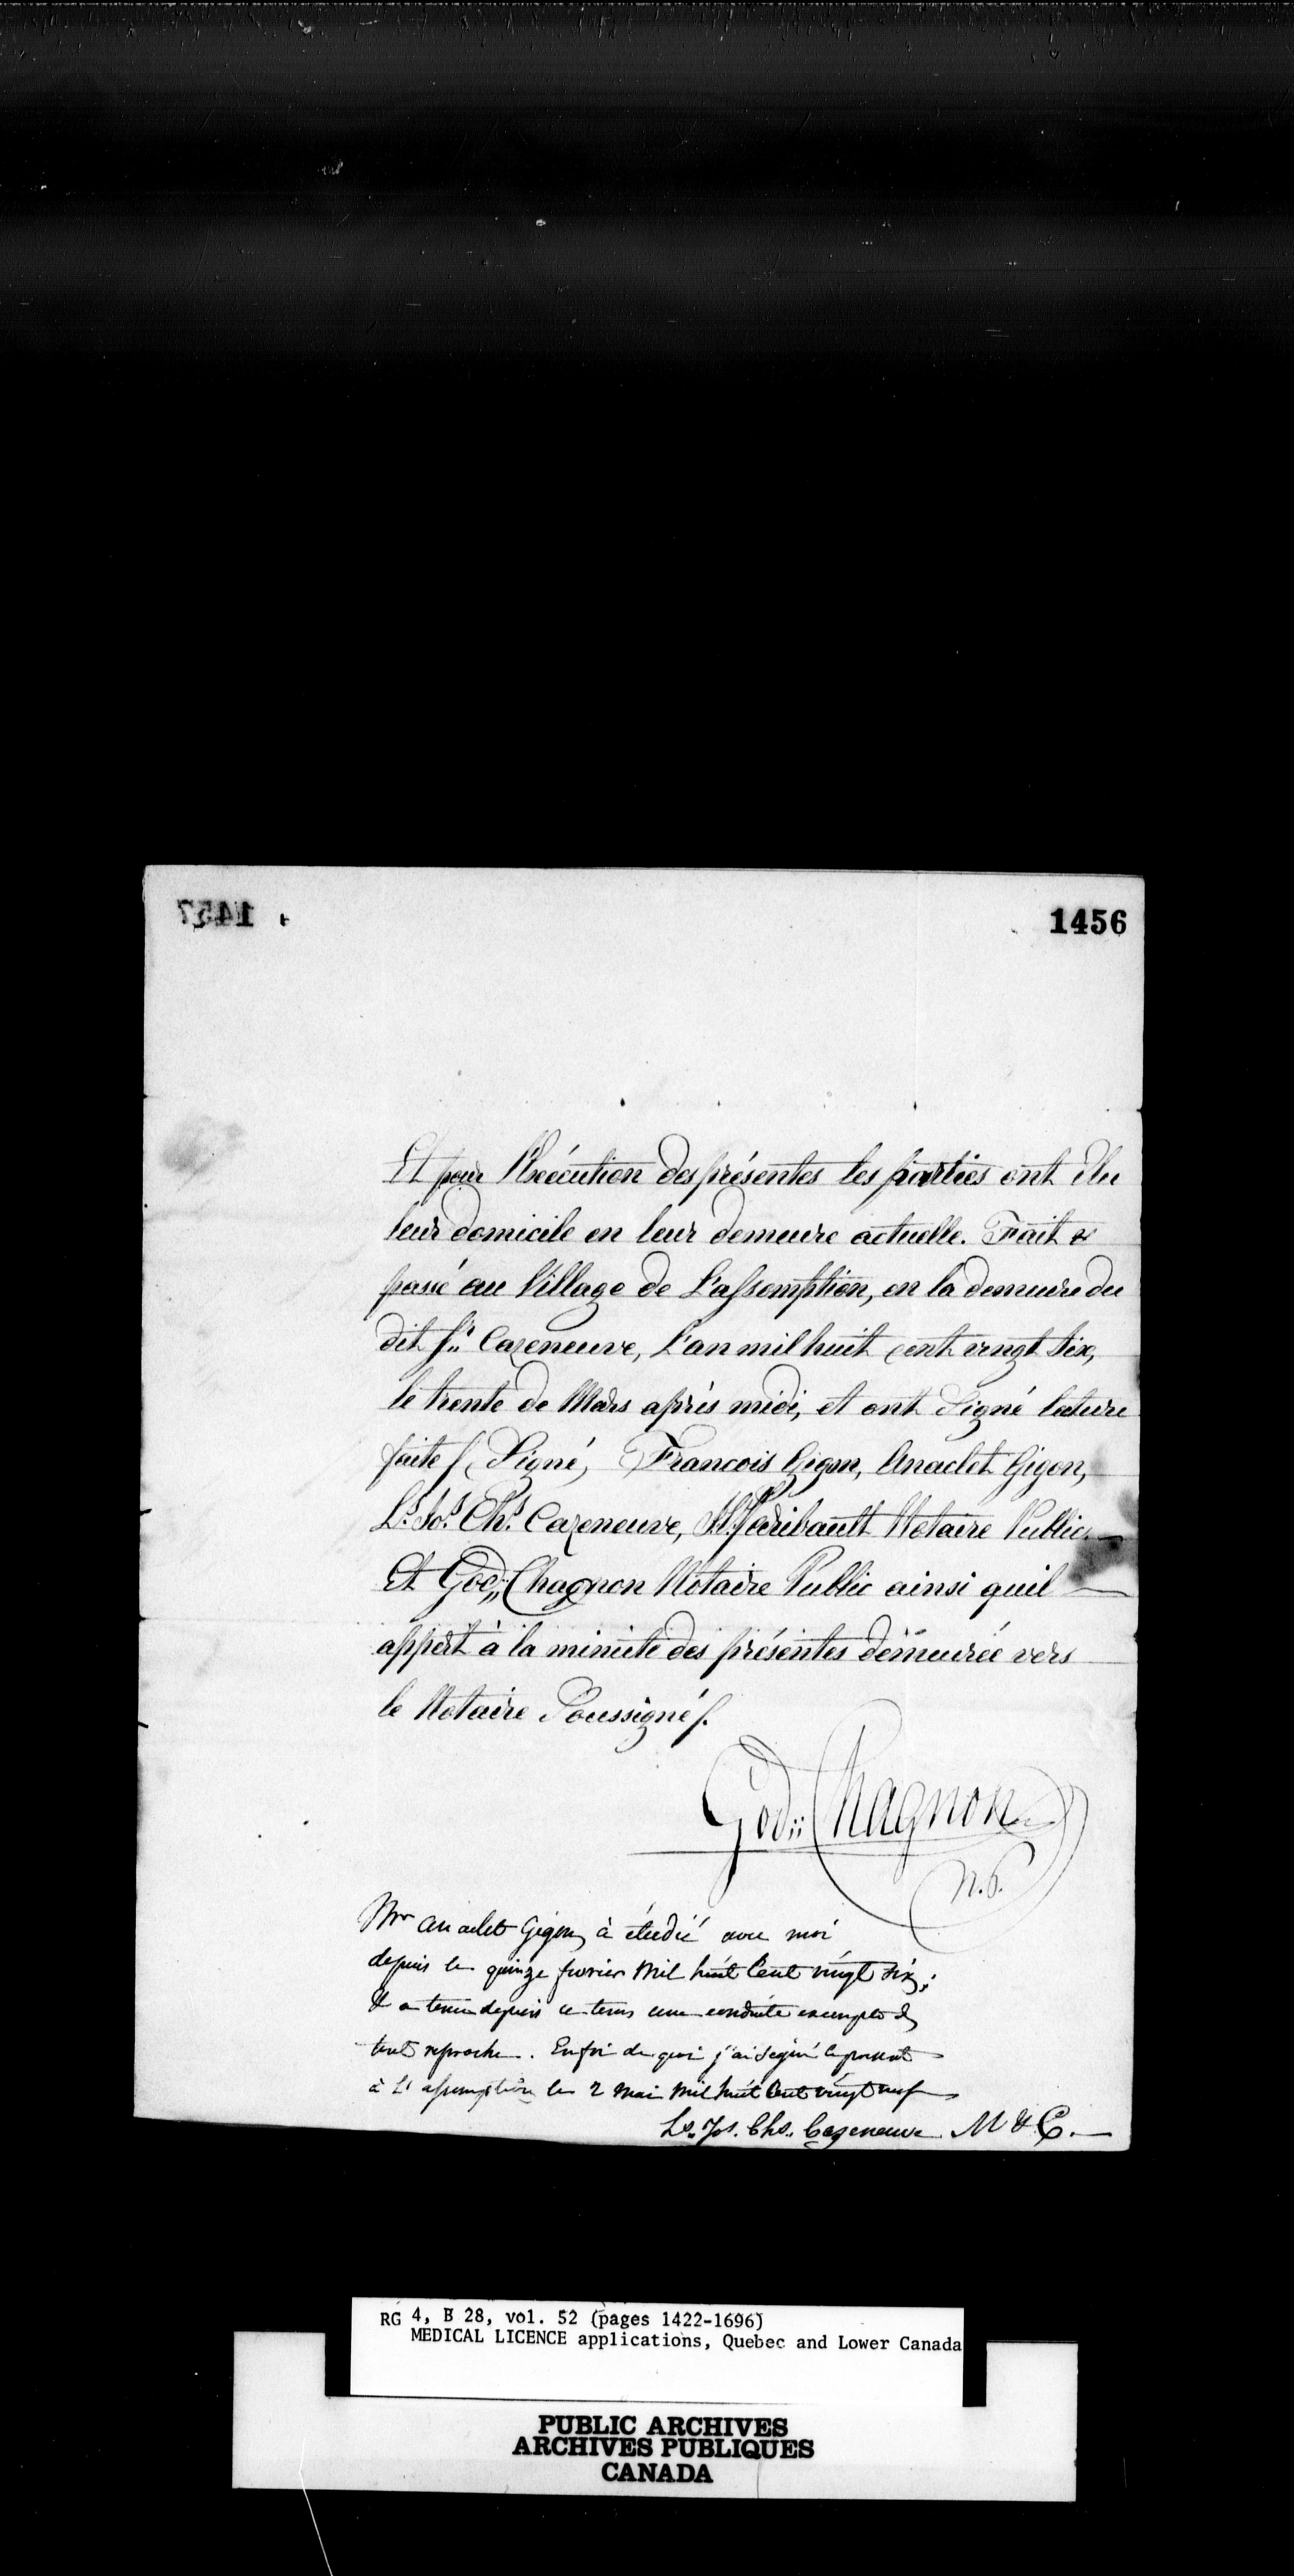 1457
1456
Et pour l'Exécution des présentes les parties ont élu
leur domicile en leur demeure actuelle. Fait &
passé au Village de L'assomption, en la demeure du
dit Sr. Cazeneuve, L'an mil huit cent vingt six,
le trente de Mars après midi, et ont Signé lecture
faite /. Signé, Francois Gigon, Anaclet Gigon,
Ls. Jos. Chs. Cazeneuve, Faribault Notaire Public
Et God: Chagnon Notaire Public ainsi quil
appert à la minute des présentes demeurée vers
le Notaire Soussigné /.
God: Chagnon
N.P.
Mr anaclet Gigon à étudié avec moi
depuis le quinze fevrier Mil huit Cent vingt six;
& a tenu depuis ce tems une conduite exempte de
tout reproche. En foi de quoi j'ai signé le present
à L'assomption le 2 Mai Mil huit Cent vingt neuf
Ls. Jos. Chs. Cazeneuve M & C.
RG 4, B 28, vol. 52 (pages 1422-1696)
MEDICAL LICENCE applications, Quebec and Lower Canada
PUBLIC ARCHIVES
ARCHIVES PUBLIQUES
CANADA